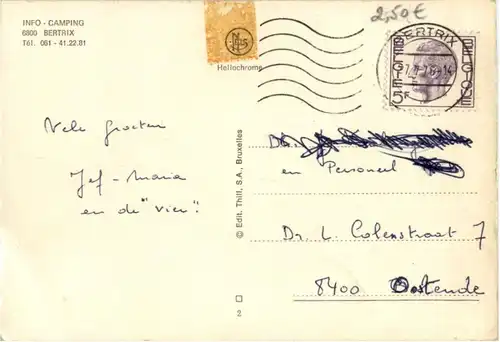 INFO - CAMPING
6800 BERTRIX
Tél. 061 - 41.22.81
Hellochrome
2,50€
BERTRIX
BELGIE
BELGIQUE
5F
Vele groeten
Jef - Maria
en de "vier".
© Edit. Thill, S.A., Bruxelles
en Personeel
Dr. L. Colenstraat 7
8400 Oostende
2